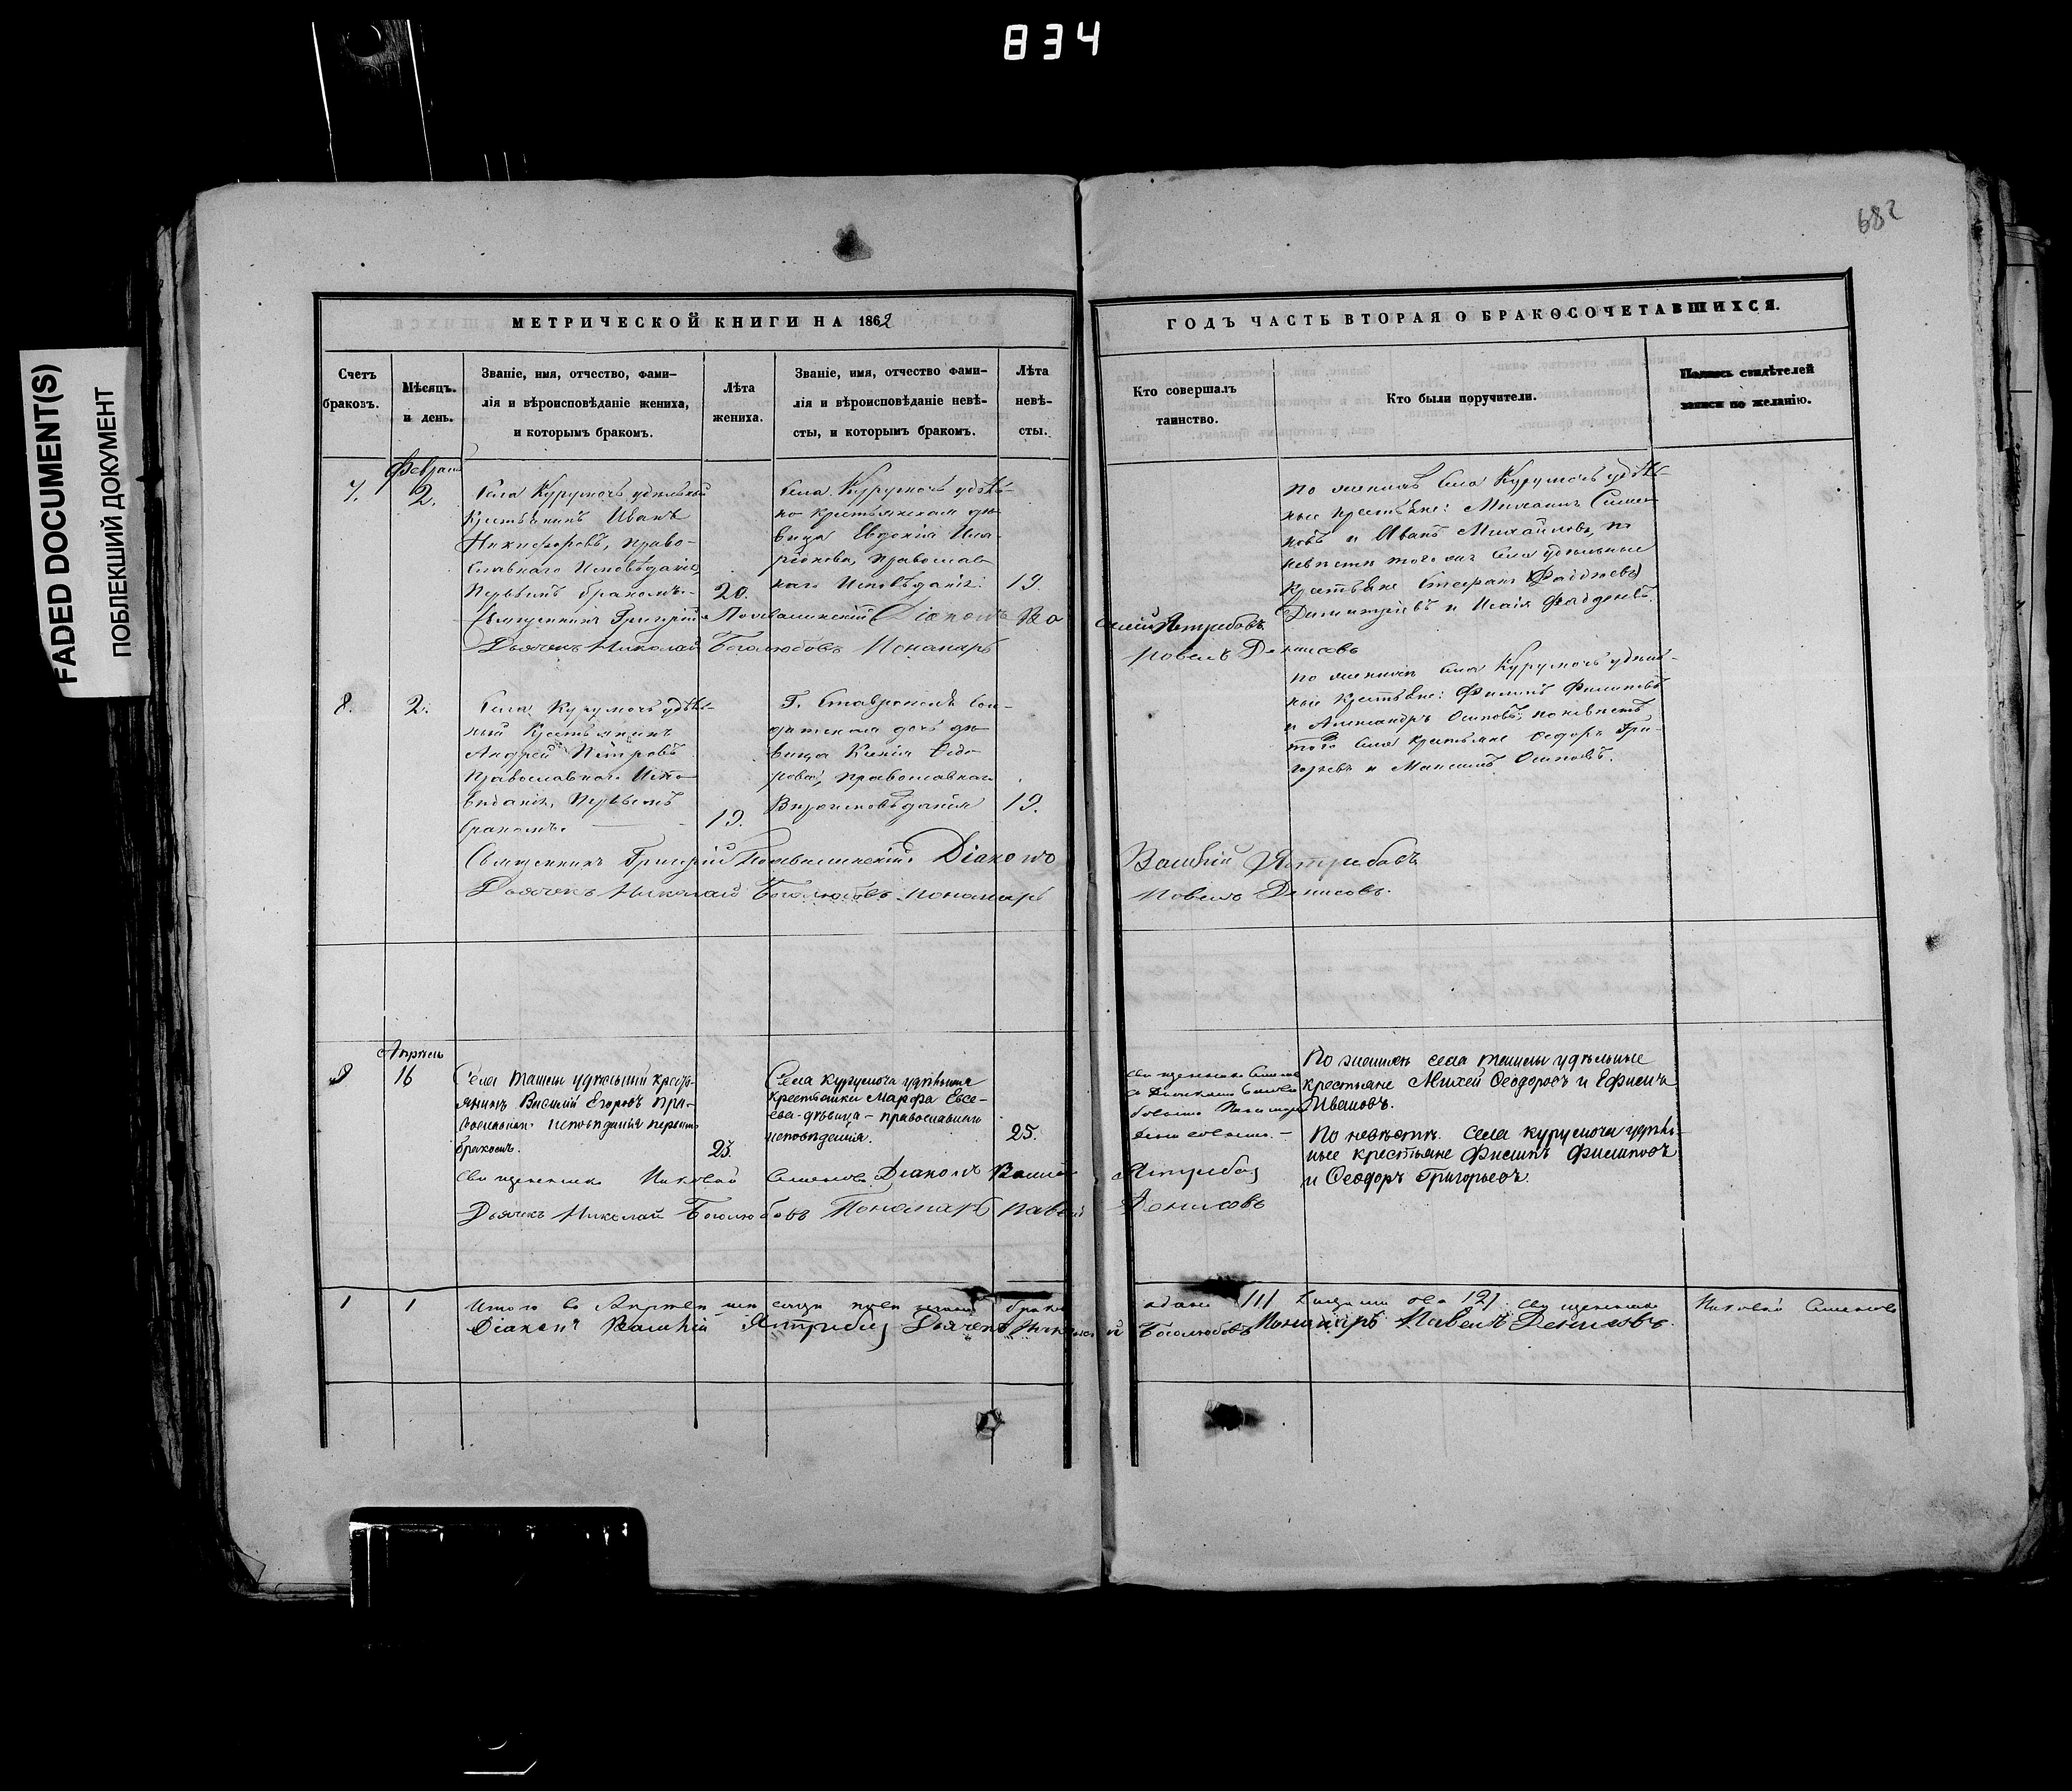 834
682
FADED DOCUMENT(S)
ПОБЛЕКШИЙ ДОКУМЕНТ
МЕТРИЧЕСКОЙ КНИГИ НА 1862
ГОДЪ ЧАСТЬ ВТОРАЯ О БРАКОСОЧЕТАВШИХСЯ.
Счетъ
браковъ.
Мѣсяцъ.
и день.
Званіе, имя, отчество, фами-
лія и вѣроисповѣданіе жениха,
и которымъ бракомъ.
Лѣта
жениха.
Званіе, имя, отчество фами-
лія и вѣроисповѣданіе невѣ-
сты, и которымъ бракомъ.
Лѣта
невѣ-
сты.
Кто совершалъ
таинство.
Кто были поручители.
Подпись свидѣтелей
записи по желанію.
7.
Февраля
2.
Села Курумочъ удѣльный
Крестьянинъ Иванъ
Никифоровъ, право-
славнаго Исповѣданія,
первымъ бракомъ.
20.
Села Курумочъ удѣль-
но крестьянская дѣ-
вица Евдокія Ила-
ріонова, православ-
наго Исповѣданія.
19.
по женихѣ Села Курумочъ удѣль-
ные крестьяне: Михаилъ Симео-
новъ и Иванъ Михайловъ, по
невѣстѣ того жъ Села удѣльные
Крестьяне Стефанъ Фаддѣевъ
Димитріевъ и Исаія Фаддеевъ.
Священникъ Григорій Похвалинскій Діаконъ Ва
силій Ястребовъ
Дьячекъ Николай Боголюбовъ Пономарь
Повелъ Денисовъ
8.
2.
Села Курумочъ удѣль-
ный Крестьянинъ
Андрей Петровъ
Православнаго Испо-
вѣданія, Первымъ
бракомъ.
19.
Г. Ставрополя Сол-
датская дочь дѣ-
вица Ксенія Ѳедо-
рова, православнаго
Вѣроисповѣданія
19.
по женихѣ Села Курумочъ удѣль-
ные Крестьяне: Филипъ Филиповъ
и Александръ Осиповъ, по невѣстѣ
того Села крестьяне Ѳедоръ Гри-
горьевъ и Максимъ Осиповъ.
Священникъ Григорій Похвалинскій Діаконъ
Василій Ястребовъ
Дьячекъ Николай Боголюбовъ Пономарь
Повелъ Денисовъ.
9
Апрѣль
16
Села Ташлы удѣльный кресть-
янинъ Василій Егоровъ пра-
вославнаго исповѣданія первымъ
бракомъ.
23.
Села Курумоча удѣльная
крестьянка Марфа Евсе-
ева дѣвица – православнаго
исповѣданія.
25.
Священникъ
Пономаре
Денисовымъ. –
По женихѣ села Ташлы удѣльные
крестьяне Михей Ѳеодоровъ и Ефимъ
Ивановъ.
По невѣстѣ села Курумоча удѣль-
ные крестьяне Филипъ Филиповъ
и Ѳеодоръ Григорьевъ.
Священникъ Николай Симеоновъ Діаконъ Василій
Ястребовъ
Дьячекъ Николай Боголюбовъ Пономарь Павелъ
Денисовъ
1
1
Итого въ Апрѣлѣ бракъ
Священникъ Николай Симеоновъ
Діаконъ Василій Ястребовъ Дьячекъ Николай Боголюбовъ Пономарь Павелъ Денисовъ.